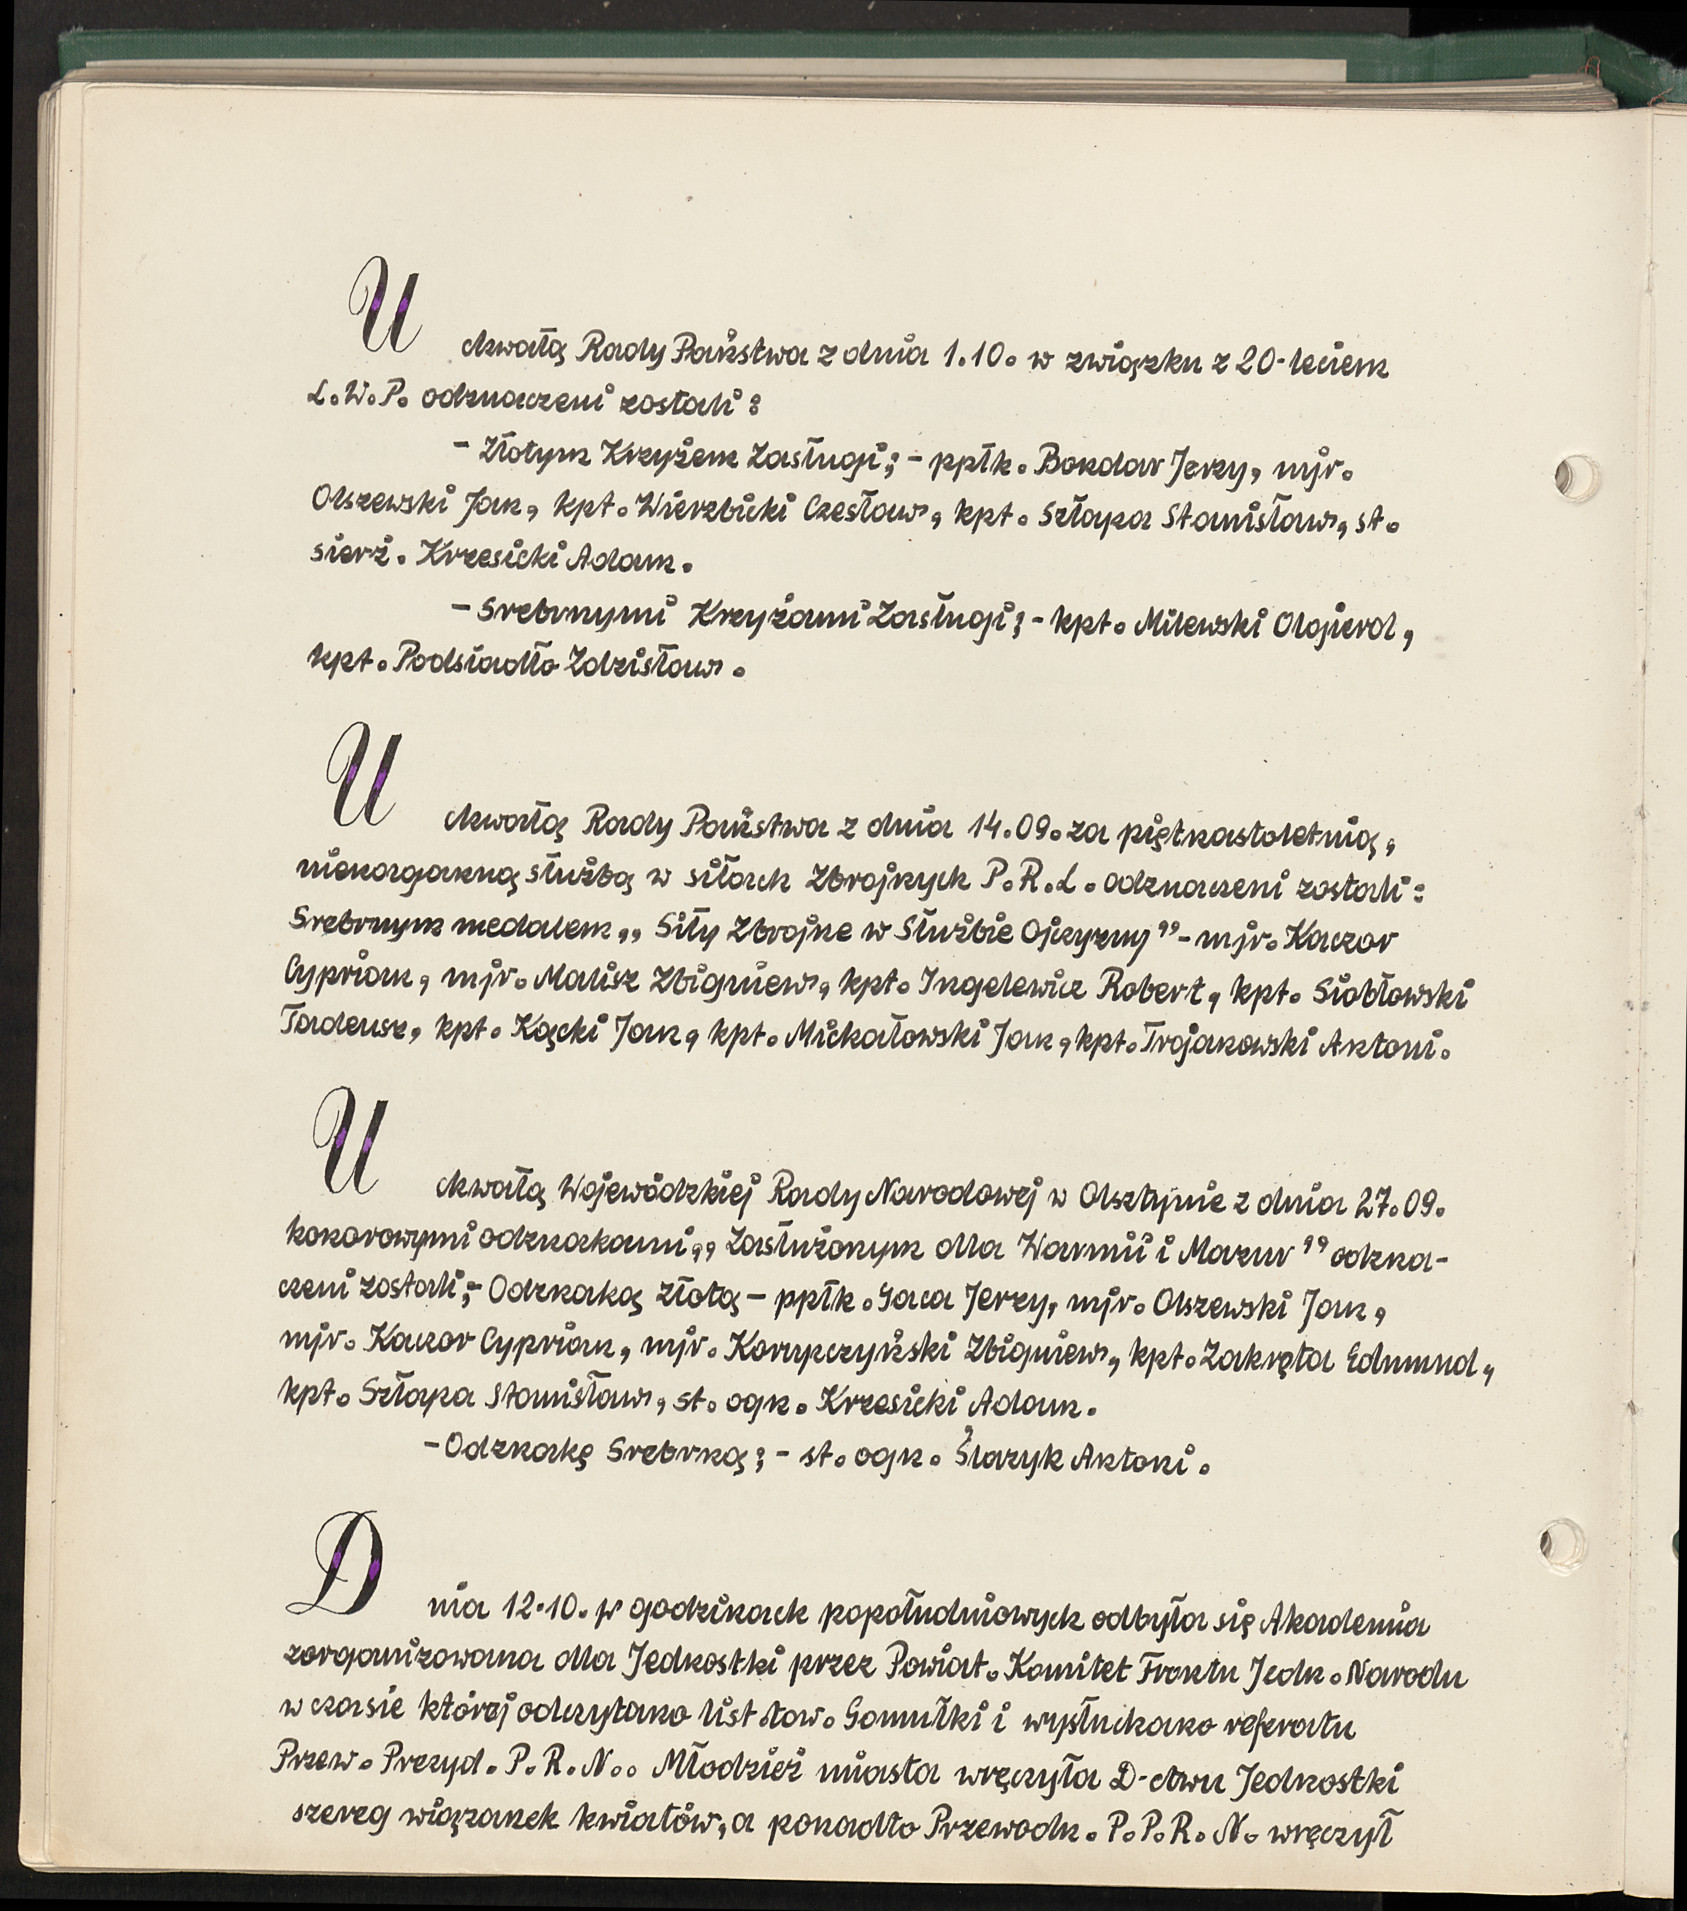 Uchwałą Rady Państwa z dnia 1.10. w związku z 20-leciem
L.W.P. odznaczeni zostali:
- Złotym Krzyżem Zasługi; - ppłk. Bondar Jerzy, mjr.
Olszewski Jan, kpt. Wierzbicki Czesław, kpt. Szłapa Stanisław, st.
sierż. Krzesicki Adam.
- Srebrnymi Krzyżami Zasługi; - kpt. Milewski Olgierd,
kpt. Podsiadło Zdzisław.
Uchwałą Rady Państwa z dnia 14.09. za piętnastoletnią,
nienaganną służbą w siłach Zbrojnych P.R.L. odznaczeni zostali:
Srebrnym medalem „Siły Zbrojne w Służbie Ojczyzny” - mjr. Kaczor
Cyprian, mjr. Malisz Zbigniew, kpt. Ingelewicz Robert, kpt. Siobłowski
Tadeusz, kpt. Kącki Jan, kpt. Michałowski Jan, kpt. Trojanowski Antoni.
Uchwałą Wojewódzkiej Rady Narodowej w Olsztynie z dnia 27.09.
honorowymi odznakami „Zasłużonym dla Warmii i Mazur” odzna-
czeni zostali; - Odznaką złotą - ppłk. Gaca Jerzy, mjr. Olszewski Jan,
mjr. Kaczor Cyprian, mjr. Korupczyński Zbigniew, kpt. Zakręta Edmund,
kpt. Szłapa Stanisław, st. ogn. Krzesicki Adam.
- Odznakę Srebrną; - st. ogn. Ślazyk Antoni.
Dnia 12.10. w godzinach popołudniowych odbyła się Akademia
zorganizowana dla Jednostki przez Powiat. Komitet Frontu Jedn. Narodu
w czasie której odczytano list tow. Gomułki i wysłuchano referatu
Przew. Prezyd. P.R.N.. Młodzież miasta wręczyła D-ctwu Jednostki
szereg wiązanek kwiatów, a ponadto Przewodn. P.P.R.N. wręczył